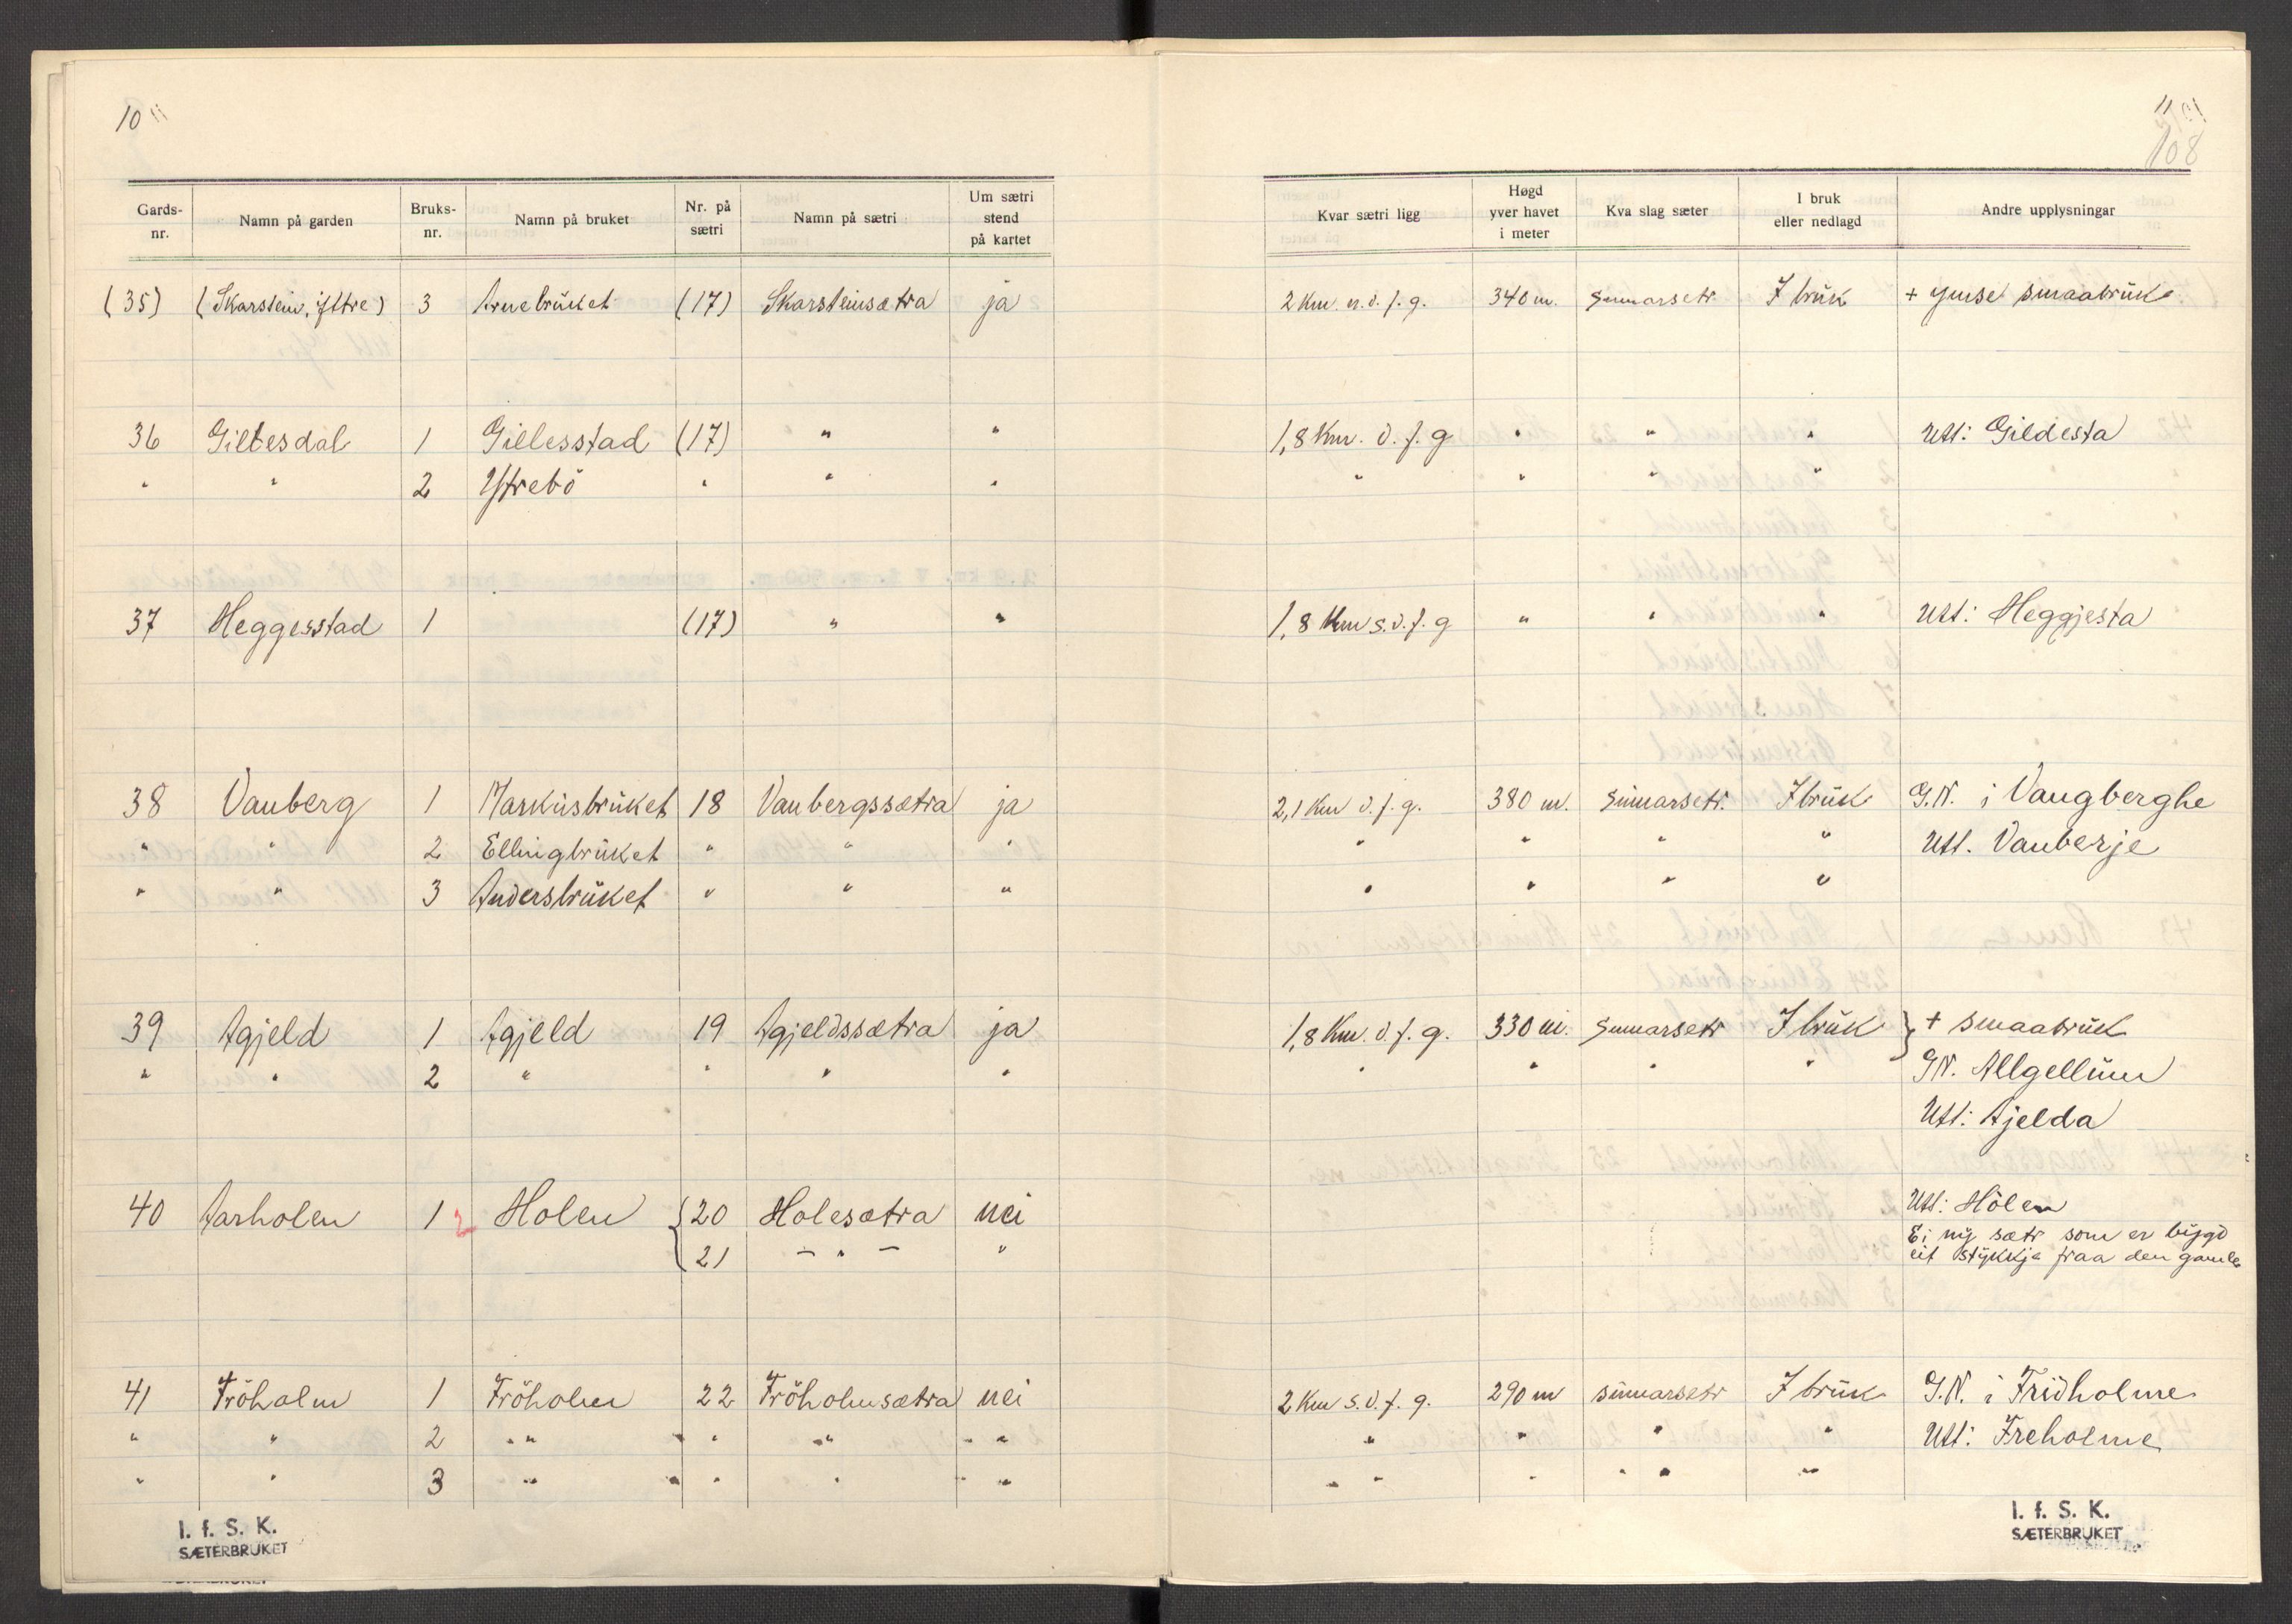 10
11
108
Gards-nr. Namn på garden Bruks-nr. Namn på bruket Nr. på sætri Namn på sætri Um sætri stend på kartet Kvar sætri ligg Høgd yver havet i meter Kva slag sæter I bruk eller nedlagd Andre upplysningar
(35) (Skarstein, yttre) 3 Arnebrŭket (17) Skarsteinsætra ja 2 Km. n.ö.f.g. 340 m. Sumarsetr I brŭk + ymse smaabrŭk
36 Giltesdal 1 Gillesstad (17) " " 1,8 Km. ö.f.g " " " Utt: Gildesta
" " 2 Ytrebö " " " " " " "
37 Heggesstad 1 (17) " " 1,8 Km s.ö.f.g " " " Utt: Heggjesta
38 Vanberg 1 Markŭsbrŭket 18 Vanbergssætra ja 2,1 Km ö.f.g. 380 m. Sŭmarsetr. I brŭk G.N. i Vangberghe
" " 2 Ellingbrŭket " " " " " " " Utt. Vanberje
" " 3 Andersbrŭket " " " " " " "
39 Agjeld 1 Agjeld 19 Agjeldssætra ja 1,8 Km. ö.f.g. 330 m. Sumarsetr I brŭk } + smaabrŭk
" " 2 " " " " " " " " G.N. Allgellŭm
Utt: Ajelda
40 Aarholen 1 2 Holen { 20 Holesætra nei Utt: Hölen
21 - " - " Ei nÿ sætr som er bÿgd
eit stÿkkje fraa den gamle
41 Fröholm 1 Fröholm 22 Fröholmsætra nei 2 Km s.ö.f.g. 290 m sŭmarsetr I brŭk G.N. i Fridholme
" " 2 " " " " " " " " " Utt: Freholme
" " 3 " " " " " " " " "
I. f. S. K.
SÆTERBRUKET
I. f. S. K.
SÆTERBRUKET